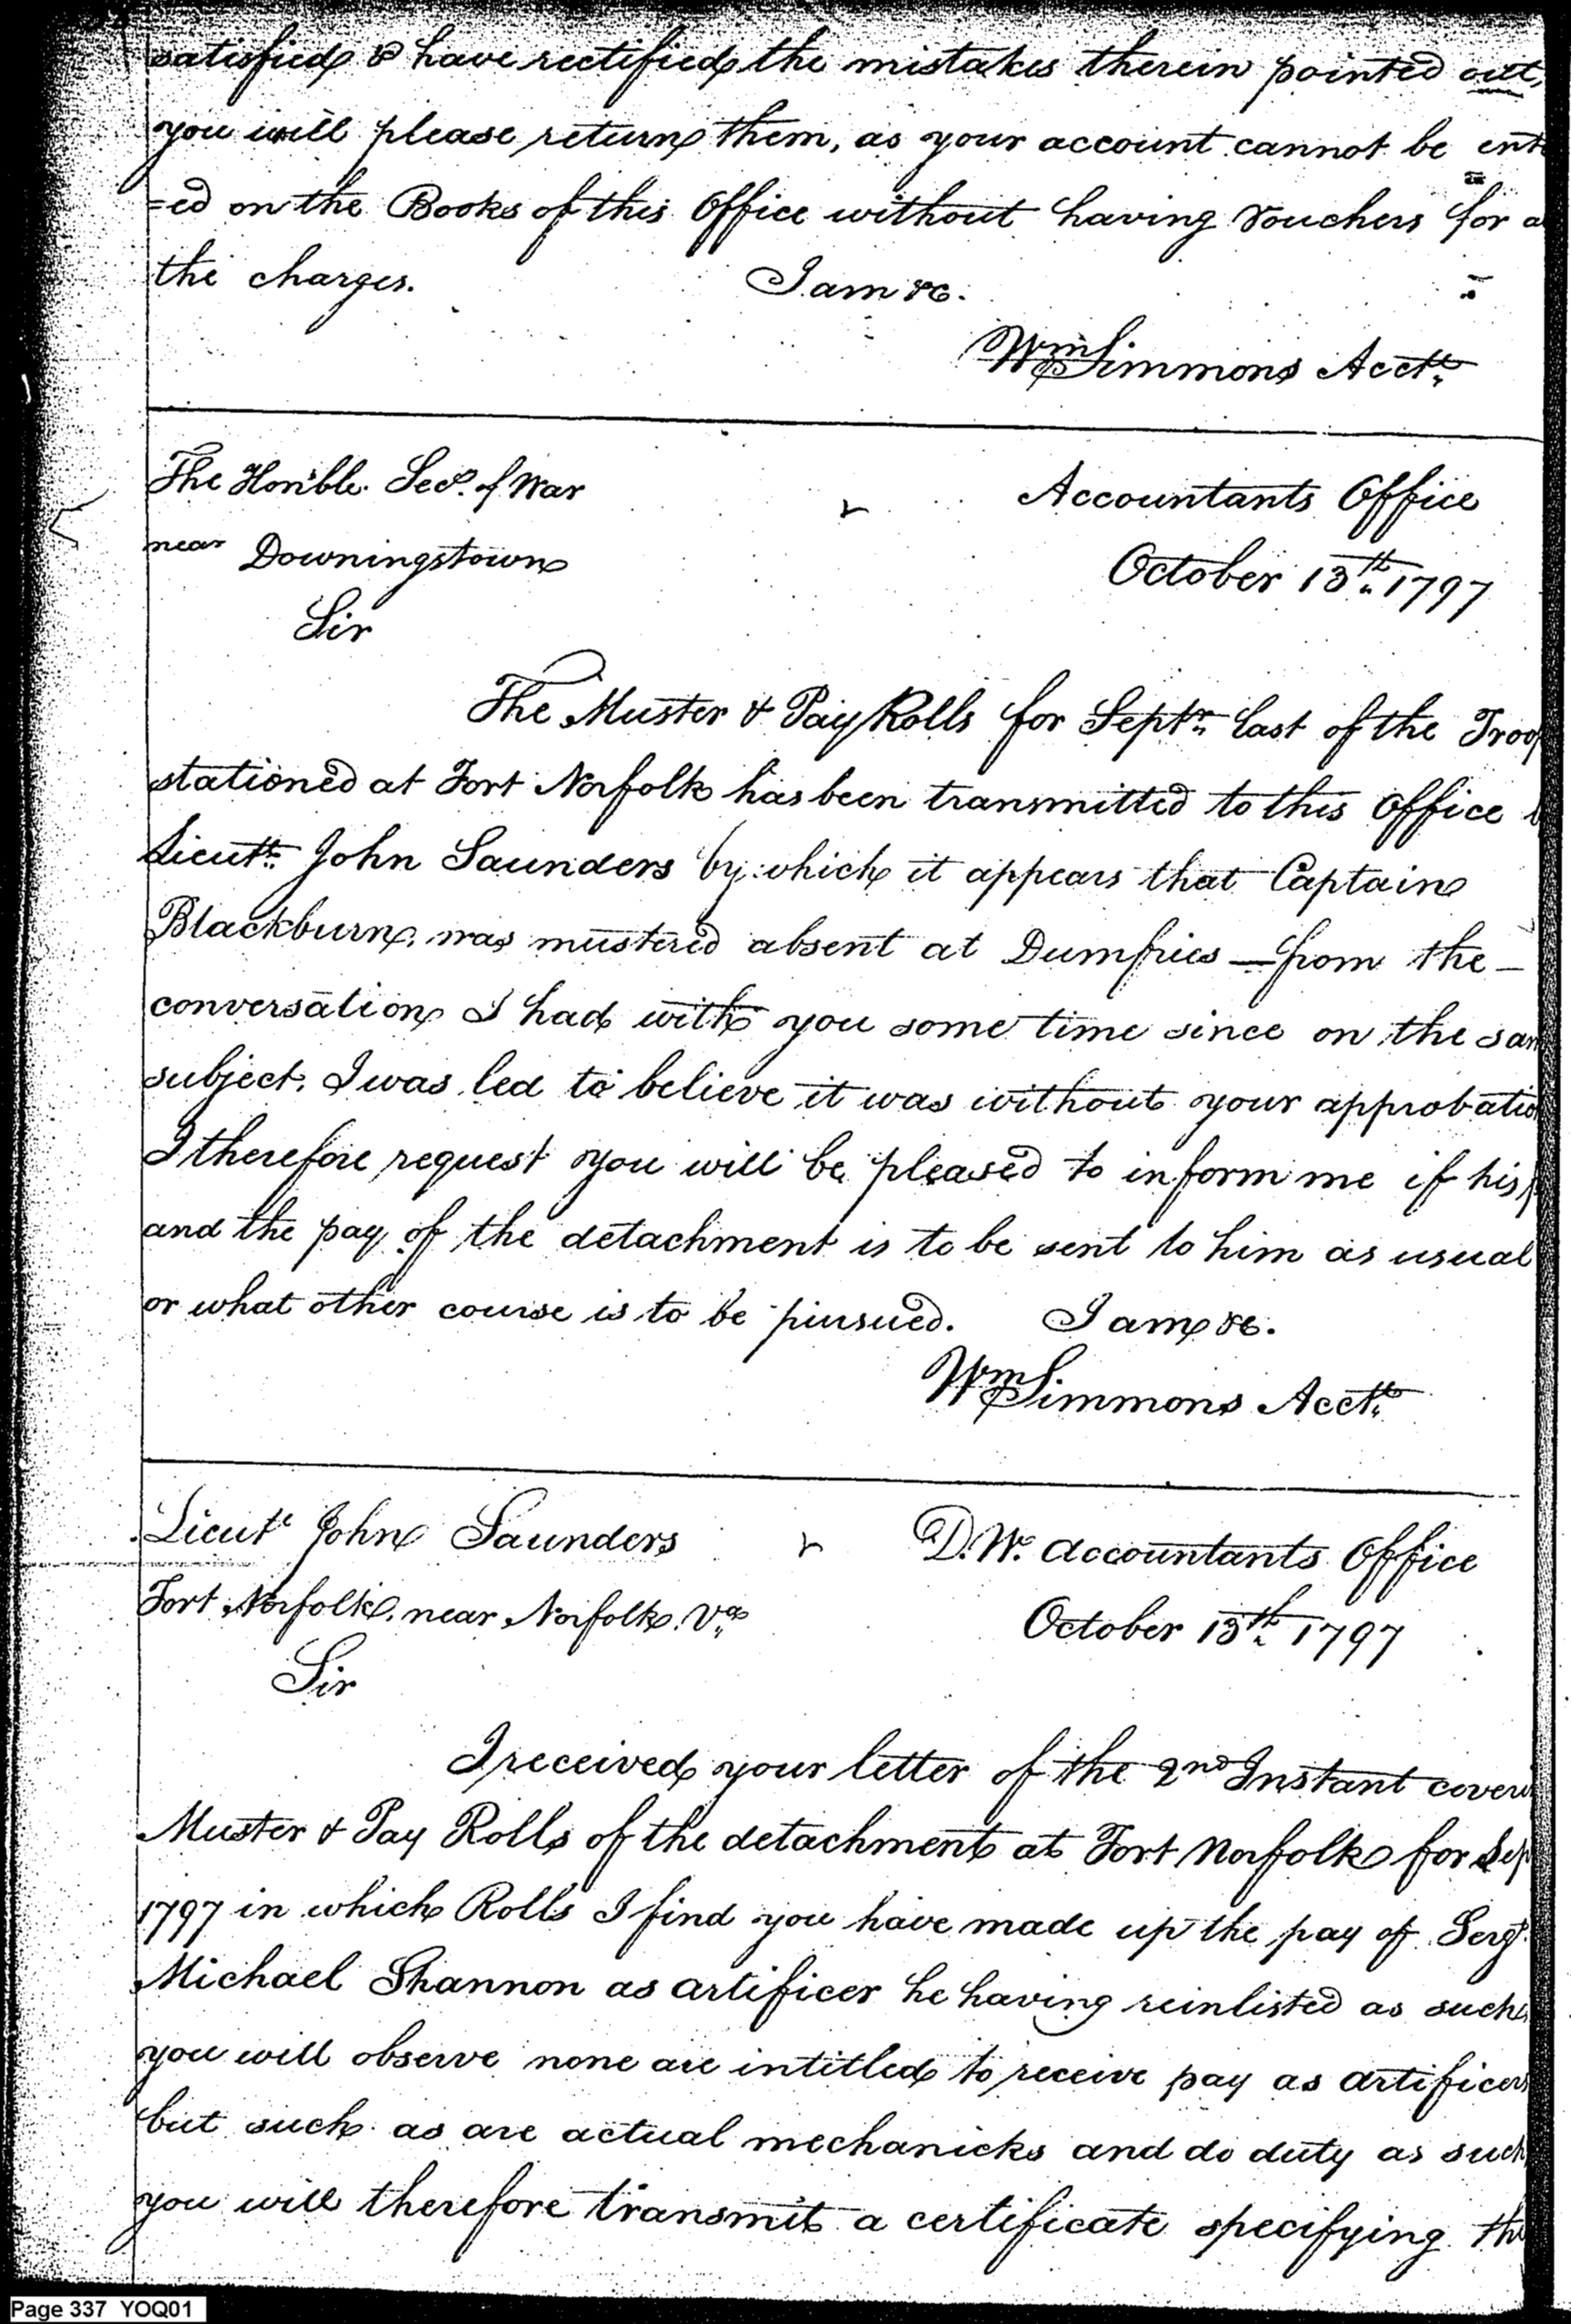 satisfied & have rectified the mistakes therein pointed out,
you will please return them, as your account cannot be ent
=ed on the Books of this Office without having Vouchers for a
the charges. I am &c.
Wm Simmons Acctt.
The Honble. Secy. of War Accountants Office
near Downingstown October 13th. 1797
Sir
The Muster & Pay Rolls for Septr. last of the Troop
stationed at Fort Norfolk has been transmitted to this Office b
Lieutt. John Saunders by which it appears that Captain
Blackburn, was mustered absent at Dumfries — from the –
conversation I had with you some time since on the sam
subject, I was led to believe it was without your approbatio
I therefore request you will be pleased to inform me if his p
and the pay of the detachment is to be sent to him as usual
or what other course is to be pursued. I am &c.
Wm Simmons Acctt.
Lieutt John Saunders D. W. Accountants Office
Fort Norfolk, near Norfolk, Va. October 13th. 1797
Sir
I received your letter of the 2nd Instant coveri
Muster & Pay Rolls of the detachment at Fort Norfolk for Sep
1797 in which Rolls I find you have made up the pay of Sergt.
Michael Shannon as artificer he having reinlisted as such,
you will observe none are intitled to receive pay as artificers
but such as are actual mechanicks and do duty as such
you will therefore transmit a certificate specifying the
Page 337 YOQ01